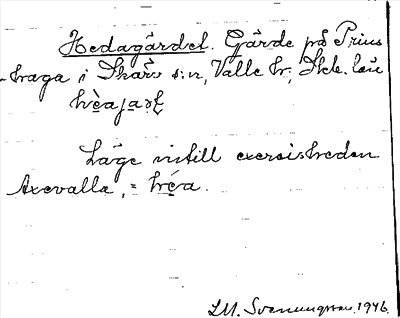 Hedagärdet. Gärde på Prins
-haga i Skärv s:n, Valle hr, Skb. län
Läge intill exercisheden
Axevalla, = hèa.
LM. Svanungsson. 1946.